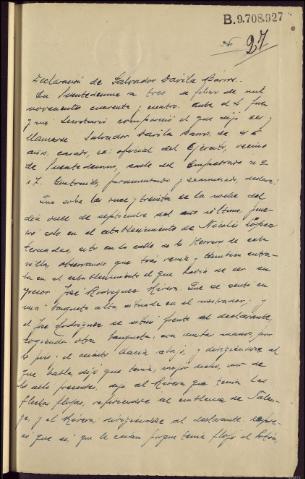 B.9.708.927
27
Declaración de Salvador Davila Barro.
En Puentedeume a tres de febrero de mil
novecientos cuarenta y cuatro. Ante el Sr Juez
y mi Secretario compareció el que dijo ser y
llamarse Salvador Davila Barro de
años, casado, ex oficial del Ejército, vecino
de Puentedeume, calle del
17. juramentado y examinado, declara:
Que sobre las once y treinta de la noche del
día once de septiembre del año último,
solo en el establecimiento de Nicolás López
sito en la calle de de esta
villa, observando que tras venía, también entraba
en el establecimiento el que había de ser su
José Rodríguez Rivera Que se sentó en
una banqueta alta situada en el mostrador; y
el José Rodríguez se sentó frente al declarante,
cogiendo otra banqueta con una mano, que
lo puso el asiento hacia abajo, y dirigiéndose al
que habla dijo que tenía
la allí presentes, dijo al Rivera que tenía las
flechas flojas, refiriéndose al emblema de Falan-
ge, y el Rivera dirigiéndose al declarante, repuso
que si; que le caían porque tenía flojo el botón,